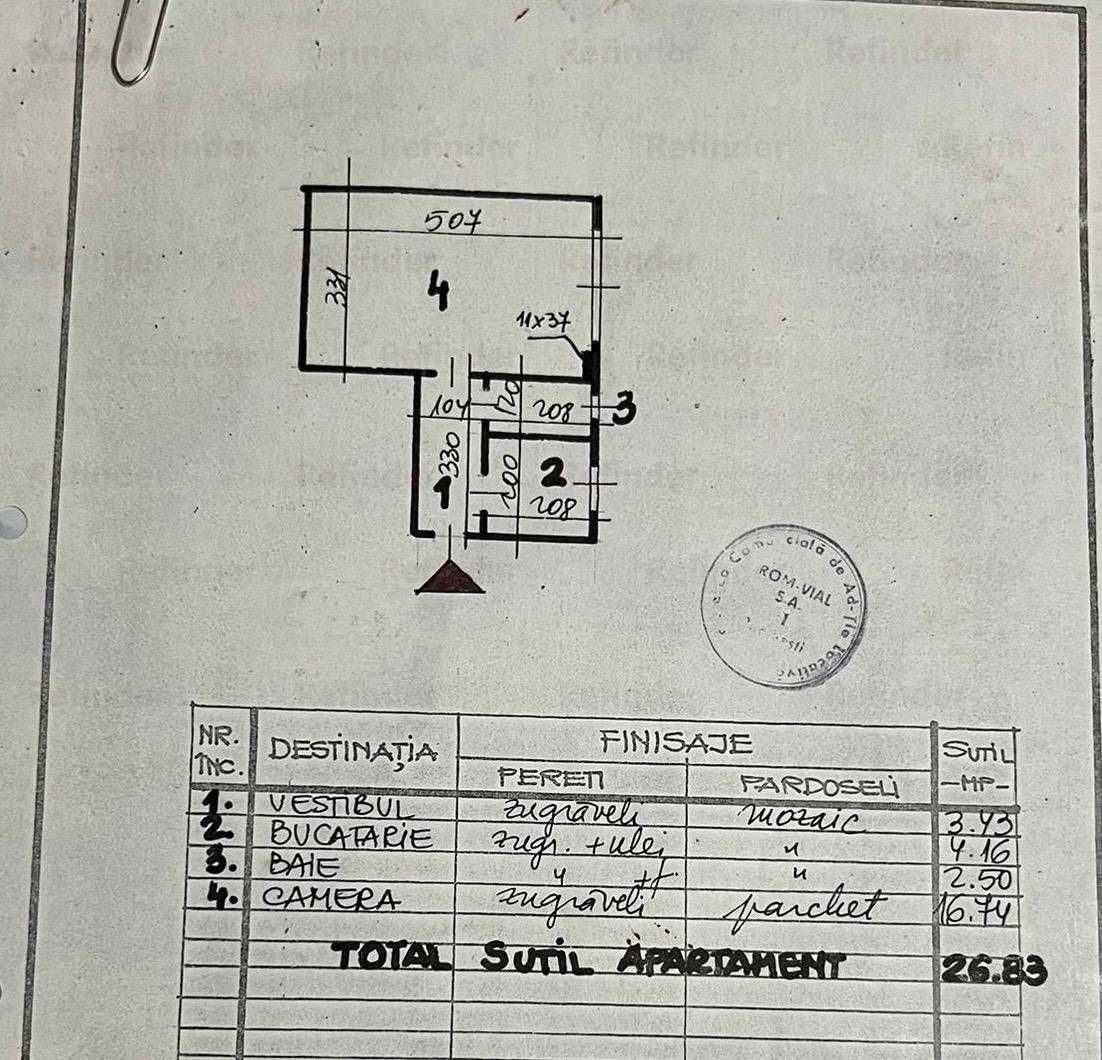 Refinder Refinder Refinder
Refinder Refinder Refinder Refin
507
331
4
11x37
104
120
208
3
330
1
200
2
208
ROM-VIAL
S.A.
I
cială de Ad-ție Locativă
NR. ÎNC. DESTINAȚIA FINISAJE SUTIL -MP-
PERETI PARDOSELI
1. VESTIBUL zugraveli mozaic 3.43
2 BUCATARIE zugr. + ulei " 4.16
3. BAIE " " 2.50
4. CAMERA zugraveli parchet 16.74
TOTAL SUTIL APARTAMENT 26.83